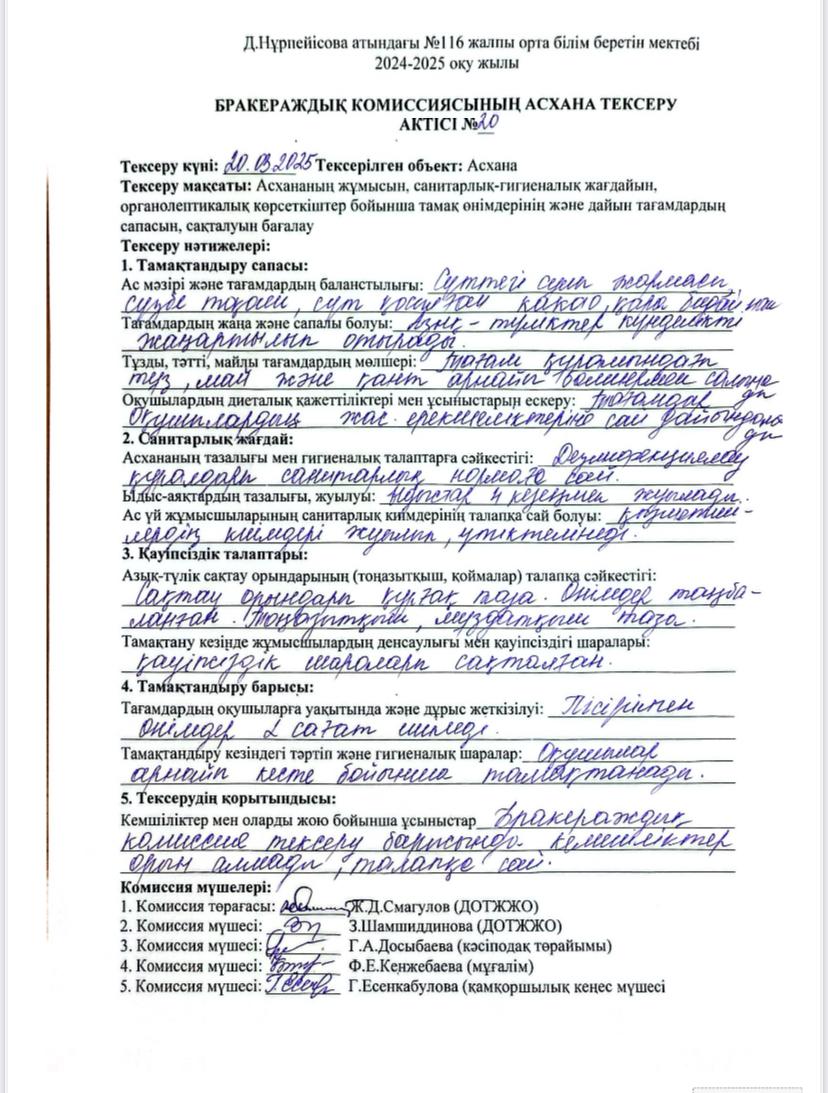 Д.Нұрпейісова атындағы №116 жалпы орта білім беретін мектебі
2024-2025 оқу жылы
БРАКЕРАЖДЫҚ КОМИССИЯСЫНЫҢ АСХАНА ТЕКСЕРУ
АКТІСІ №20
Тексеру күні: 20.03.2025 Тексерілген объект: Асхана
Тексеру мақсаты: Асхананың жұмысын, санитарлық-гигиеналық жағдайын,
органолептикалық көрсеткіштер бойынша тамақ өнімдерінің және дайын тағамдардың
сапасын, сақталуын бағалау
Тексеру нәтижелері:
1. Тамақтандыру сапасы:
Ас мәзірі және тағамдардың баланстылығы: Сүттегі жармасы,
сүзбе тоқаш, сүт қосылған какао, қара бидай нан
Тағамдардың жаңа және сапалы болуы: Азық-түліктер күнделікті
жаңартылып отырады.
Тұзды, тәтті, майлы тағамдардың мөлшері: Тағам құрамындағы
тұз, май және қант арнайы мөлшермен салынады
Оқушылардың диеталық қажеттіліктері мен ұсыныстарын ескеру: Тағамдар
Оқушылардың жас ерекшеліктеріне сай дайындалады
2. Санитарлық жағдай:
Асхананың тазалығы мен гигиеналық талаптарға сәйкестігі: Дезинфекциялау
құралдары санитарлық нормаға сай.
Ыдыс-аяқтардың тазалығы, жуылуы: Ыдыстар 4 кезеңмен жуылады.
Ас үй жұмысшыларының санитарлық киімдерінің талапқа сай болуы: қызметкер-
лердің киімдері жуылып, үтіктелінеді.
3. Қауіпсіздік талаптары:
Азық-түлік сақтау орындарының (тоңазытқыш, қоймалар) талапқа сәйкестігі:
Сақтау орындары құрғақ таза. Өнімдер таңба-
ланған. Тоңазытқыш, мұздатқыш таза.
Тамақтану кезінде жұмысшылардың денсаулығы мен қауіпсіздігі шаралары:
қауіпсіздік шаралары сақталған.
4. Тамақтандыру барысы:
Тағамдардың оқушыларға уақытында және дұрыс жеткізілуі: Пісірілген
өнімдер 2 сағат
Тамақтандыру кезіндегі тәртіп және гигиеналық шаралар: Оқушылар
арнайы кесте бойынша тамақтанады.
5. Тексерудің қорытындысы:
Кемшіліктер мен оларды жою бойынша ұсыныстар Бракераждық
комиссия тексеру барысында кемшіліктер
орын алмады, талапқа сай.
Комиссия мүшелері:
1. Комиссия төрағасы: Ж.Д.Смагулов (ДОТЖЖО)
2. Комиссия мүшесі: З.Шамшиддинова (ДОТЖЖО)
3. Комиссия мүшесі: Г.А.Досыбаева (кәсіподақ төрайымы)
4. Комиссия мүшесі: Ф.Е.Кенжебаева (мұғалім)
5. Комиссия мүшесі: Г.Есенкабулова (қамқоршылық кеңес мүшесі